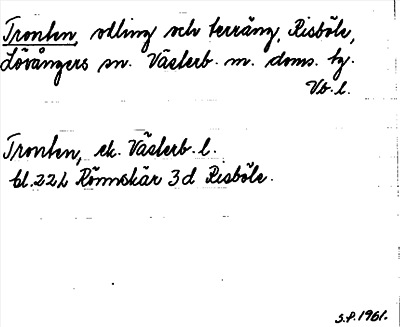 Tronten, odling och terräng, Risböle,
Lövångers sn. Västerb. m. doms. hg.
Vb. l.
Tronten, ek. Västerb. l.
bl. 22L Rönnskär 3d Risböle.
S.P. 1961.